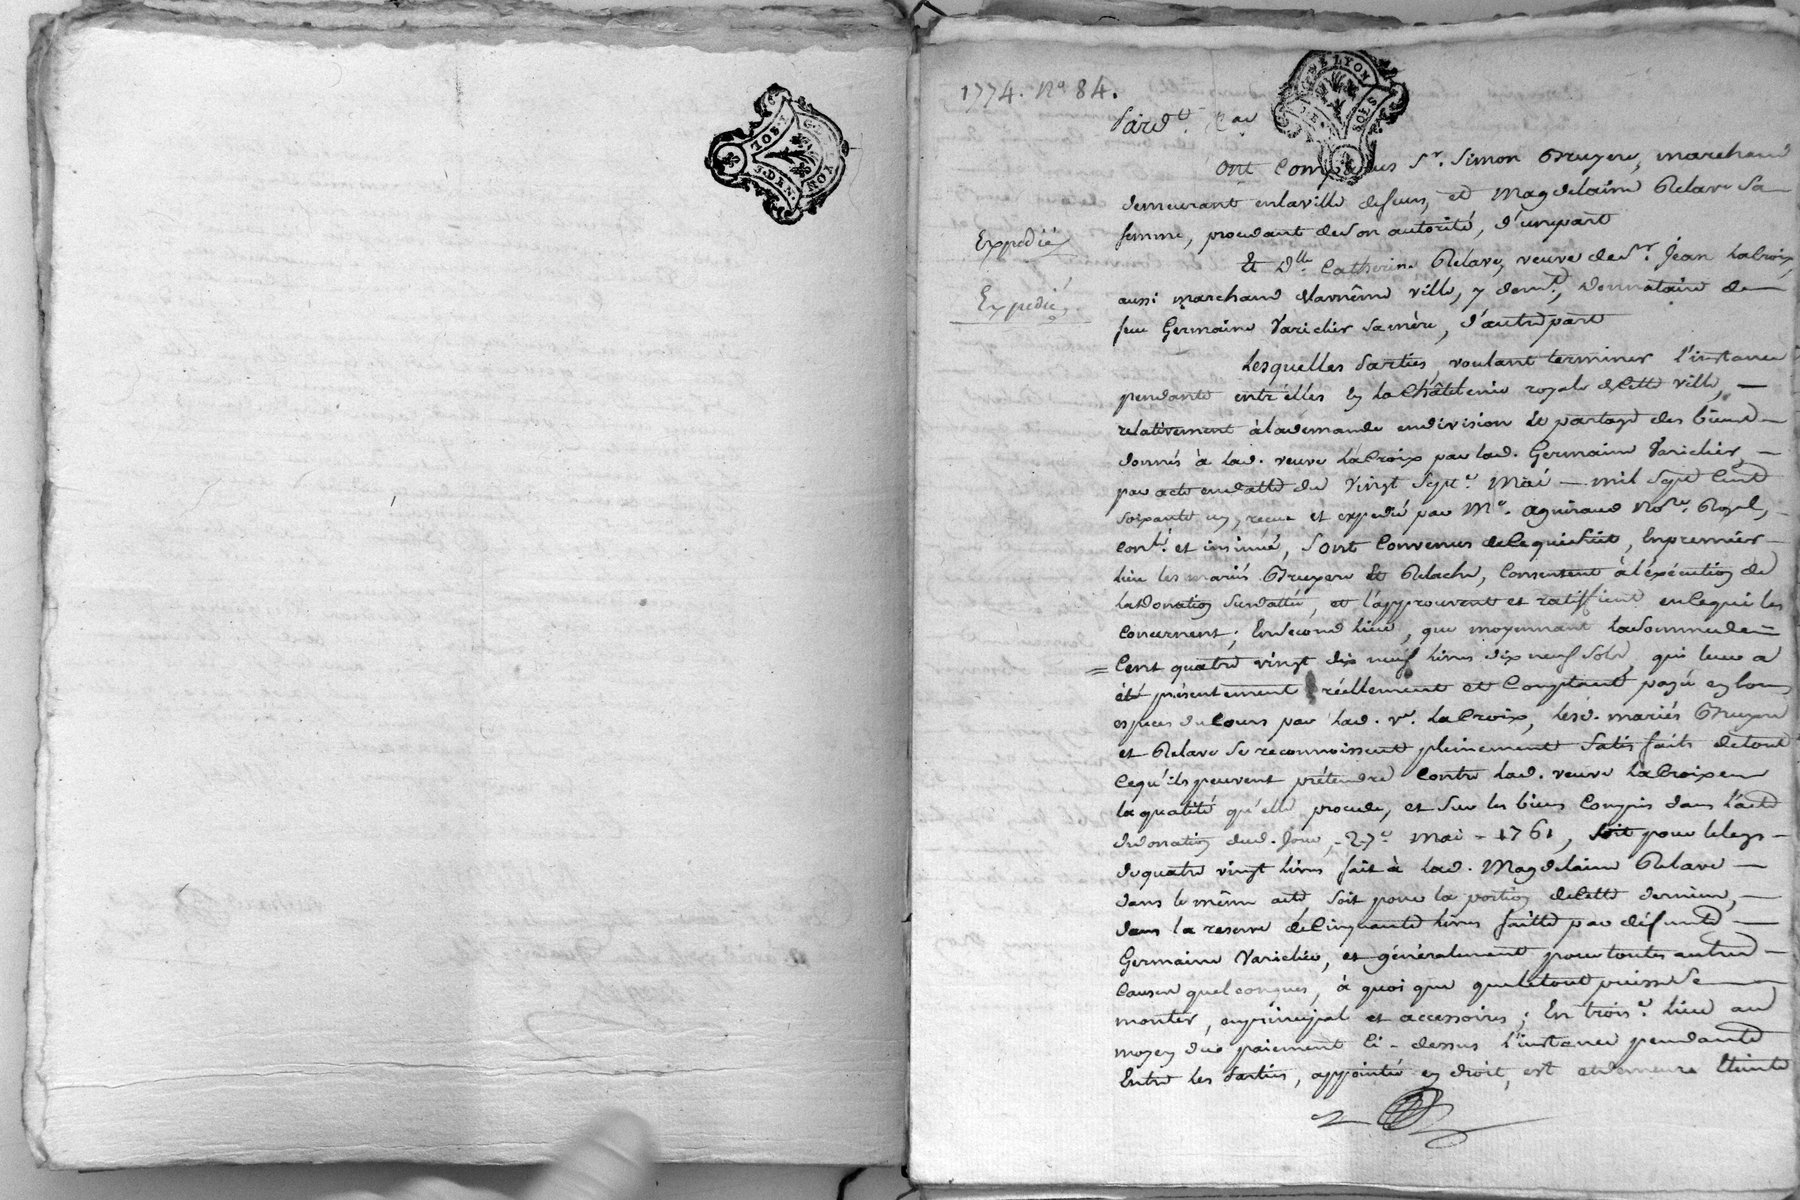 1774. N° 84.
Pard.t
Ont Comparus Sr. Simon Bruyere, marchand
demeurant enlaville defeurs, et Magdelaine Relave Sa
Expedié
femme, procedant deson autorité, d'unepart
Et Dlle Catherine Relave, veuve deSr. Jean LaCroix,
Expedié
aussi marchand delamême ville, y demt., Donnataire de
feue Germaine Varichier Samère, d'autrepart
Lesquelles Parties, voulant terminer l'instance
pendante entr'elles en LaChâtelenie royale deCette ville,
relativement àlademande endivision et partage des biens
donnés à Lad. veuve LaCroix par lad. Germaine Varichier
par acte endatte du Vingt Sept.e Mai mil Sept Cent
soixante un, recue et expedié par Me. aguiraud No.re Royal,
Conlé. et insinué, Sont Convenus deCequiSuit, Enpremier
lieu les mariés Bruyere Et Relave, Consentent àl'éxécution de
ladonation Susdattée, et l'approuvent et ratiffient enCequi les
Concernent; EnSecond lieu, que moyennant laSommede
Cent quatre vingt dix neuf livres dix neuf Sols, qui leur a
été présentement réellement et Comptant payée en bonnes
especes duCours par lad. ve. LaCroix, lesd. mariés Bruyere
et Relave Se reconnoissent pleinement Satisfaits detout
Cequ'ils peuvent prétendre Contre lad. veuve LaCroix en
la qualité qu'elle procede, et Sur les biens Compris dans l'acte
dedonation dud. Jour 27e Mai 1761, Soit pour lelegs
dequatre vingt livres fait à lad. Magdelaine Relave
dans le même acte, Soit pour la portion deCette derniere,
dans la reserve deCinquante livres faitte par défunte
Germaine Varichier, et généralement pour toutes autres
Causes quelconques, à quoi que queletout puisse Se
monter, enprincipal et accessoires; En trois.e lieu au
moyen du paiement Ci-dessus l'instance pendante
Entre les Parties, appointée en droit, est etdemeure éteinte